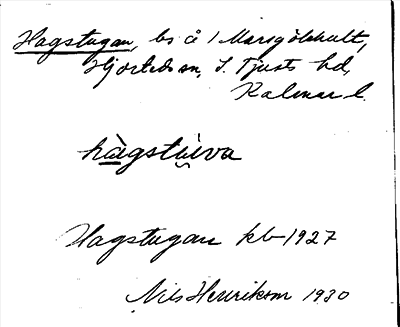 Hagstugan, bs å 1 Marsgölehult,
Hjorteds sn, S. Tjusts hd,
Kalmar l.
hàgstúva
Hagstugan kb 1927
Nils Henrikson 1930